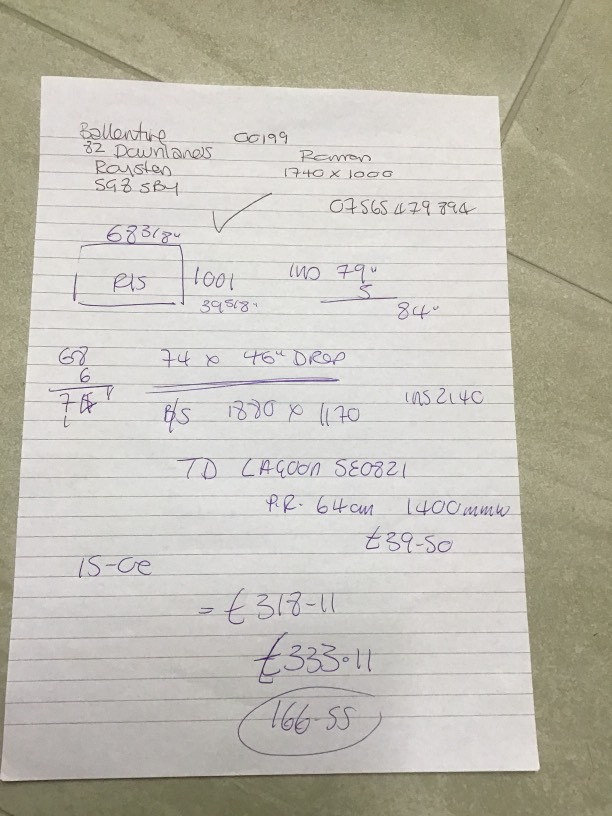 Ballentine 00199
82 Downlands Roman
Royston 1740 x 1000
SG8 5BY
07565479894
68 3/8"
R/S 1001 INS 79"
39 5/8" 5
84"
68 74 x 46" DROP
6
74"
B/S 1880 x 1170 INS 2140
TD LAGOON SE0821
P.R. 64cm 1400mmw
£39-50
15-00
= £318-11
£333.11
166-55